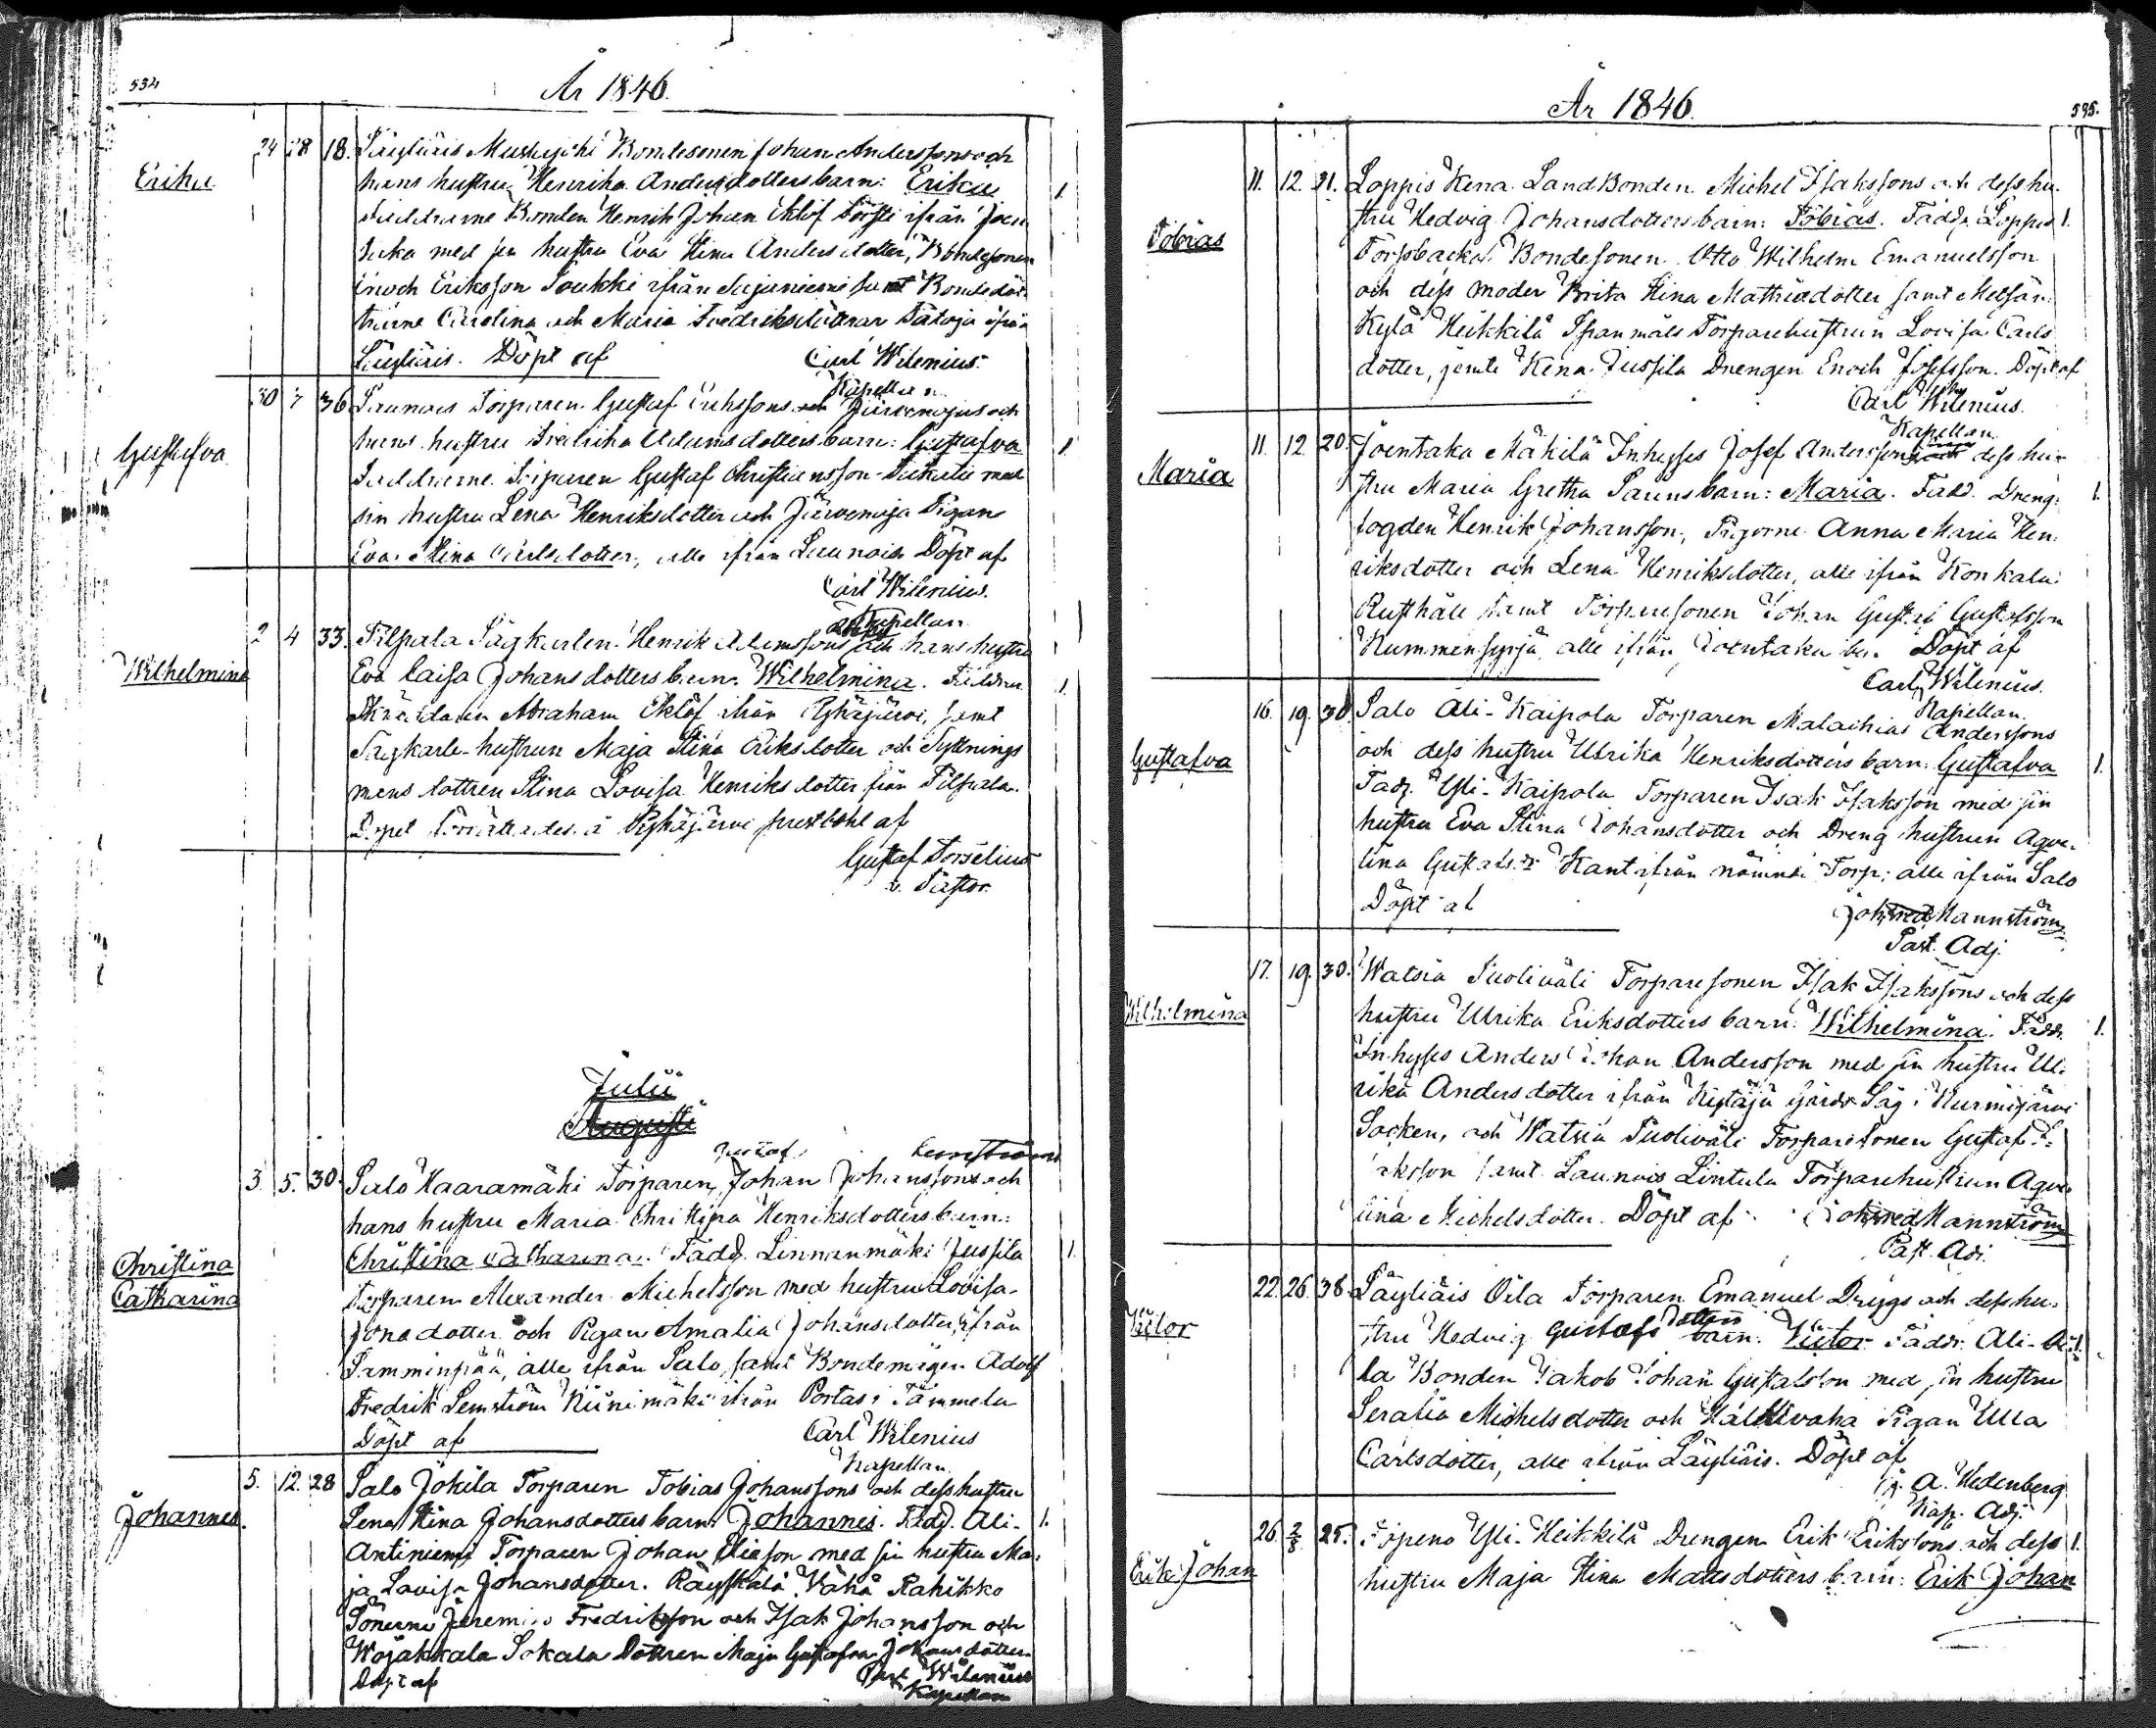 534
År 1846.
Erika
24 28 18. Läyliäis Muskyjoki Bondesonen Johan Anderssons och
hans hustru Henrika Andersdotters barn: Erika 1.
Faddrarne Bonden Henrik Johan Eklöf ifrån Joen
taka med sin hustru Eva Stina Andersdotter, Bondesonen
Enoch Eriksson Soukki ifrån samt Bondedött
rarne Carolina och Maria Fredriksdöttrar ifrån
Läyliäis. Döpt af Carl Wilenius.
Kapellan
Gustafva
30 7 36 Launois Torparen Gustaf Erikssons och
hans hustru Fredrika Adamsdotters barn: Gustafva 1
Faddrarne Torparen Gustaf Christiansson med
sin hustru Lena Henriksdotter och Järvenoja Pigan
Eva Stina Carlsdotter, alle ifrån Launois Döpt af
Carl Wilenius.
Kapellan
Wilhelmina
2 4 33. Pilpala Sågkarlen Henrik Adamssons och hans hustru
Eva Caisa Johansdotters barn. Wilhelmina. Faddrar 1.
Abraham Eklöf ifrån Pyhäjärvi, samt
Sågkarls-hustrun Maja Stina Eriksdotter och Syttnings
mans dottren Stina Lovisa Henriksdotter från Pilpala.
Dopet förrättades å Pyhäjärvi prestbohl af
Gustaf Forselius
v. Pastor.
Julii
Augusti
Lemström
3. 5. 30. Salo Haaramäki Torparen Johan Johanssons och
hans hustru Maria Christina Henriksdotters barn:
Christina Catharina
Christina Catharina. Fadd. Linnanmäki Jussila 1.
Torparen Alexander Michelsson med hustru Lovisa
Jonadotter och Pigan Amalia Johansdotter, ifrån
Samminpää, alle ifrån Salo, samt Bondemågen Adolf
Fredrik Lemström Niinimäki ifrån Portas i Tammela
Döpt af Carl Wilenius
Kapellan.
Johannes.
5. 12. 28 Salo Jokila Torparen Tobias Johanssons och dess hustru
Lena Stina Johansdotters barn: Johannes. Fadd. Ali- 1.
Antiniemi Torparen Johan Eliasson med sin hustru Ma-
ja Lovisa Johansdotter. Räyskälä Vähä Rahikko
Sönerne Jeremias Fredriksson och Isak Johansson och
Wojakkala Sokala Dottren Maja Gustafva Johansdotter
Döpt af Carl Wilenius
Kapellan
År 1846.
535.
Tobias
11. 12. 21. Loppis Kena LandBonden Michel Isakssons och dess hu-
stru Hedvig Johansdotters barn: Tobias. Faddr. Loppis 1.
Torfsbacka Bondesonen Otto Wilhelm Emanuelsson
och dess moder Brita Stina Mathiasdotter samt Metsän
Kylä Heikkilä Ispanmäki Torparehustrun Lovisa Carls
dotter, jemte Kena Jussila Drengen Enoch Josefsson. Döpt af
Carl Wilenius.
Kapellan
Maria
11. 12. 20. Joentaka Mäkilä Inhyses Josef Anderssons och dess hu-
stru Maria Gretha barn: Maria. Fadd. Dreng- 1.
fogden Henrik Johansson, Pigorne Anna Maria Hen-
riksdotter och Lena Henriksdotter, alle ifrån Konkala
Rusthåll samt Torparesonen Johan Gustaf Gustafsson
Nummensyrjä alle ifrån Joentaka by. Döpt af
Carl Wilenius.
Kapellan.
Gustafva
16. 19. 30. Salo Ali-Kaipola Torparen Malachias Anderssons
och dess hustru Ulrika Henriksdotters barn: Gustafva 1.
Fadd. Yli-Kaipola Torparen Isak Isaksson med sin
hustru Eva Stina Johansdotter och Dreng hustrun Agve-
lina Gustafsdr Kant ifrån nämnde Torp; alle ifrån Salo
Döpt af Joh Mannström
Past. Adj.
Wilhelmina
17. 19. 30. Watsia Puoliväli Torparesonen Isak Isakssons och dess
hustru Ulrika Eriksdotters barn: Wilhelmina. Faddr. 1.
Inhyses Anders Johan Andersson med sin hustru Ul-
rika Andersdotter ifrån Kytäjä Gårds Såg i Nurmijärvi
Socken, och Watsia Puoliväli Torparesonen Gustaf I-
saksson samt Launois Lintula Torparehustrun Agve-
lina Michelsdotter. Döpt af Joh Mannström
Past. Adj.
Victor
22. 26. 38. Läyliäis Oila Torparen Emanuel Drygs och dess hu-
stru Hedvig Gustafs dotters barn: Victor Faddr. Ali-Oi- 1.
la Bonden Jakob Johan Gustafsson med sin hustru
Serafia Michelsdotter och Pigan Ulla
Carlsdotter, alle ifrån Läyliäis. Döpt af
J. A. Hedenberg
Kap. Adj.
Erik Johan
26 2/8 25. Topeno Yli-Heikkilä Drengen Erik Erikssons och dess 1.
hustru Maja Stina Mattsdotters barn: Erik Johan